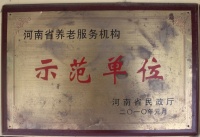 河南省养老服务机构
示范单位
河南省民政厅
二〇一〇年元月